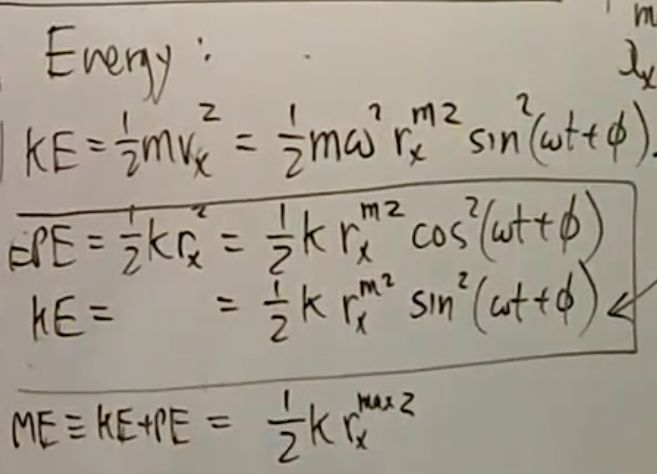 Energy :
m
λx
KE = ½mvₓ² = ½mω² rₓᵐ² sin²(ωt+ϕ).
EPE = ½krₓ² = ½k rₓᵐ² cos²(ωt+ϕ)
KE = = ½k rₓᵐ² sin²(ωt+ϕ) ↙
ME ≡ KE+PE = ½k rₓᵐᵃˣ ²